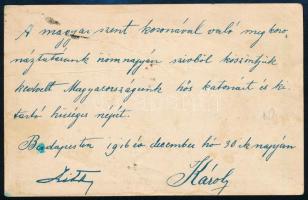 A magyar szent koronával való megkoro-
náztatásunk nemnapján szivből köszöntjük
kedvelt Magyarországunk hős katonáit és ki-
tartó hűséges népét.
Budapesten 1916 év december hó 30 ik napján
Zita Károly